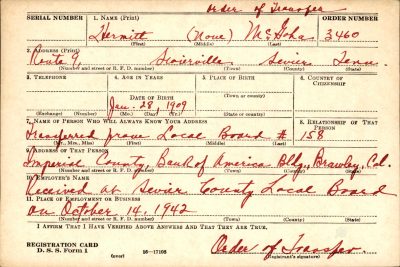 Order of Transfer
SERIAL NUMBER 1. NAME (Print) ORDER NUMBER
Hermitt (None) McGaha 3460
(First) (Middle) (Last)
2. ADDRESS (Print)
Route 9, Sevierville Sevier Tenn.
(Number and street or R. F. D. number) (Town) (County) (State)
3. TELEPHONE 4. AGE IN YEARS 5. PLACE OF BIRTH 6. COUNTRY OF CITIZENSHIP
DATE OF BIRTH
Jan. 28, 1909
(Town or county)
(Exchange) (Number) (Mo.) (Day) (Yr.) (State or country)
7. NAME OF PERSON WHO WILL ALWAYS KNOW YOUR ADDRESS 8. RELATIONSHIP OF THAT PERSON
Transferred from Local Board # 158
(Mr., Mrs., Miss) (First) (Middle) (Last)
9. ADDRESS OF THAT PERSON
Imperial County, Bank of America Bldg, Brawley, Cal.
(Number and street or R. F. D. number) (Town) (County) (State)
10. EMPLOYER'S NAME
Received at Sevier County Local Board
11. PLACE OF EMPLOYMENT OR BUSINESS
on October 14, 1942
(Number and street or R. F. D. number) (Town) (County) (State)
I AFFIRM THAT I HAVE VERIFIED ABOVE ANSWERS AND THAT THEY ARE TRUE.
REGISTRATION CARD
D. S. S. Form 1 (over) 16—17105 Order of Transfer.
(Registrant's signature)